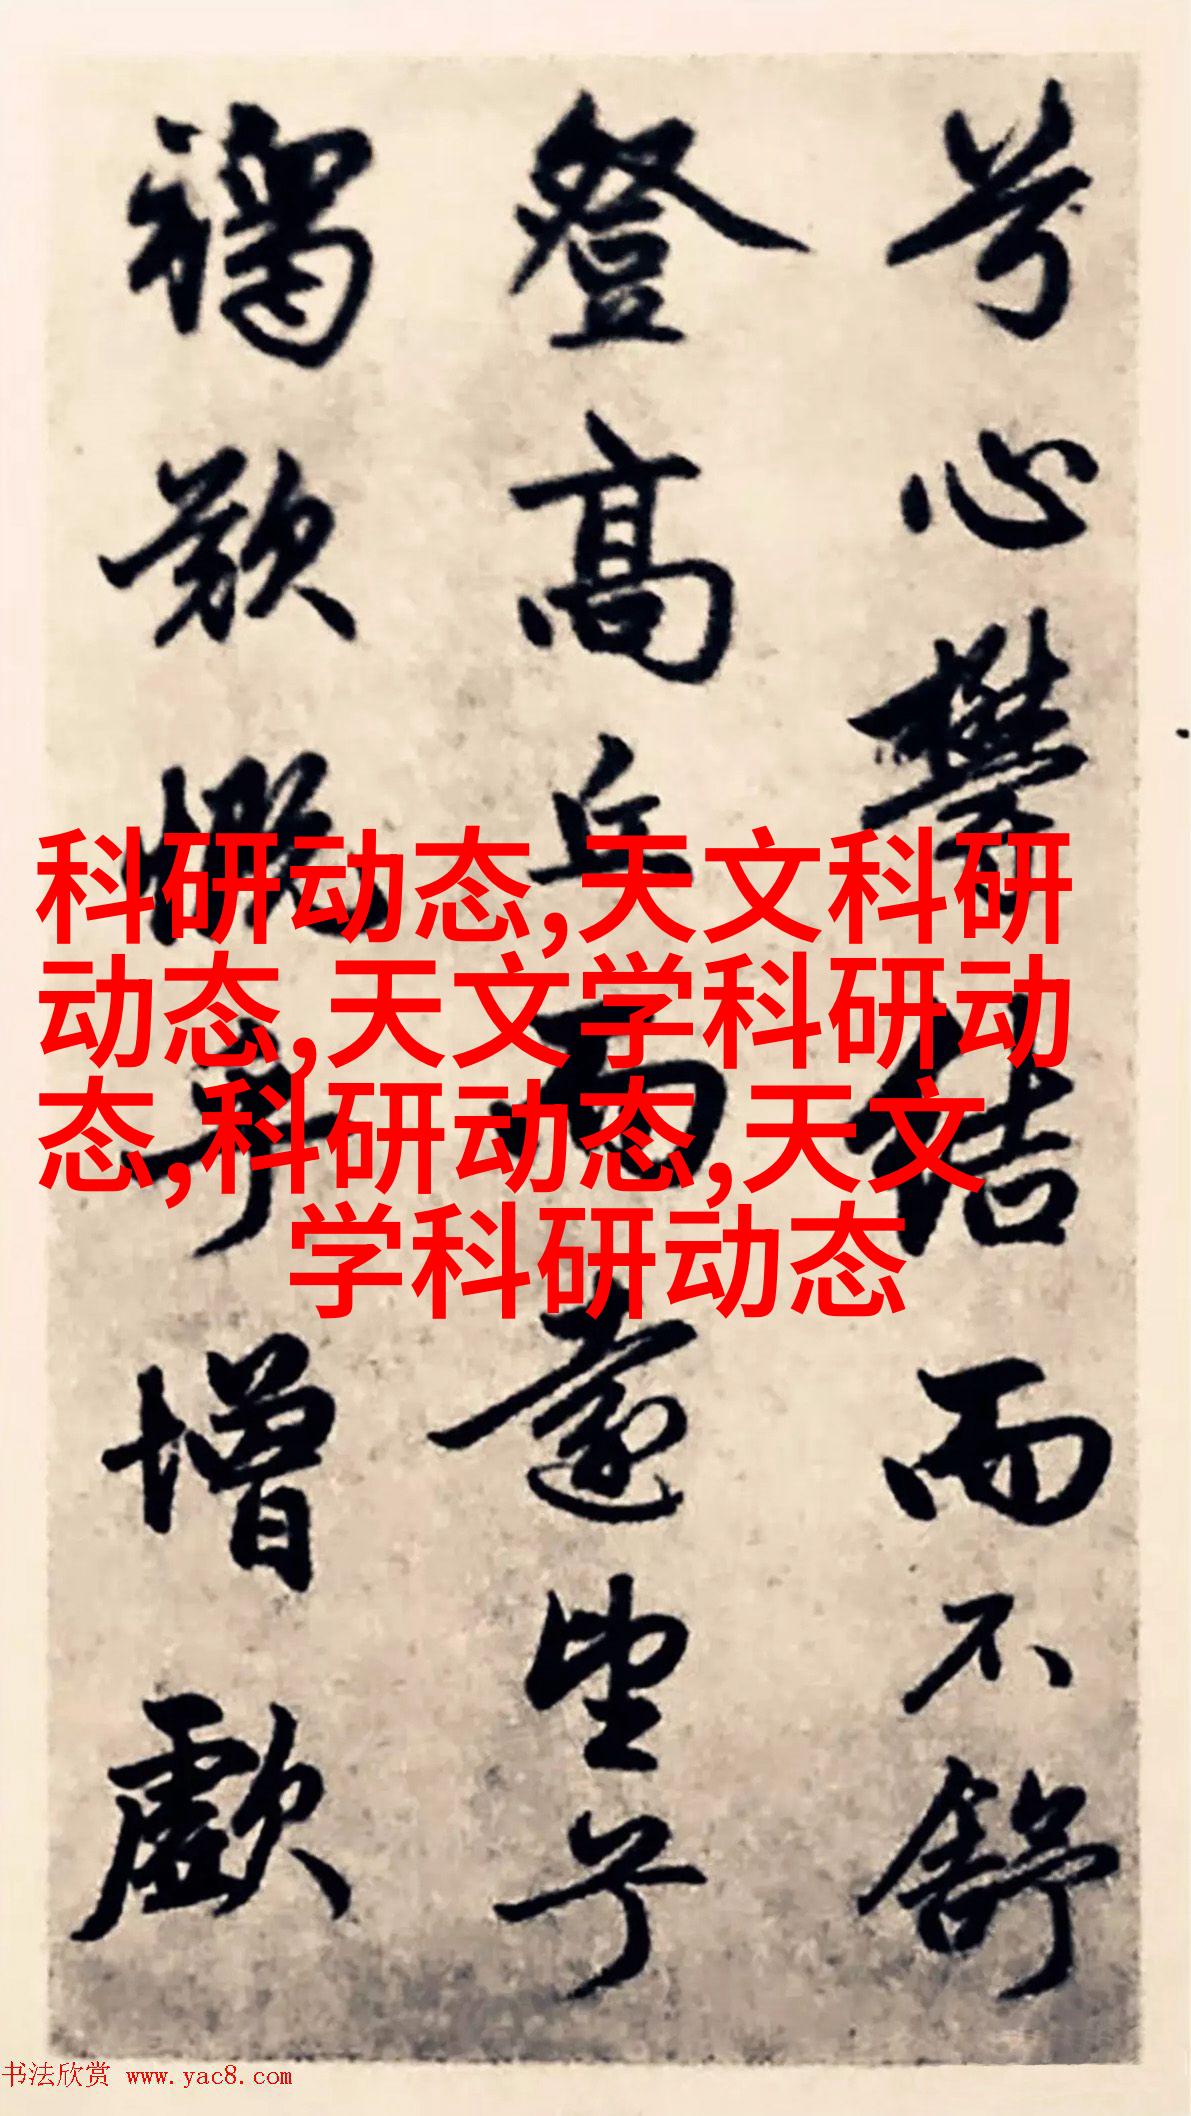 兮心鬱結而不舒
登高丘而遠望兮
欷增歔
科研动态,天文科研
动态,天文学科研动
态,科研动态,天文
学科研动态
书法欣赏 www.yac8.com